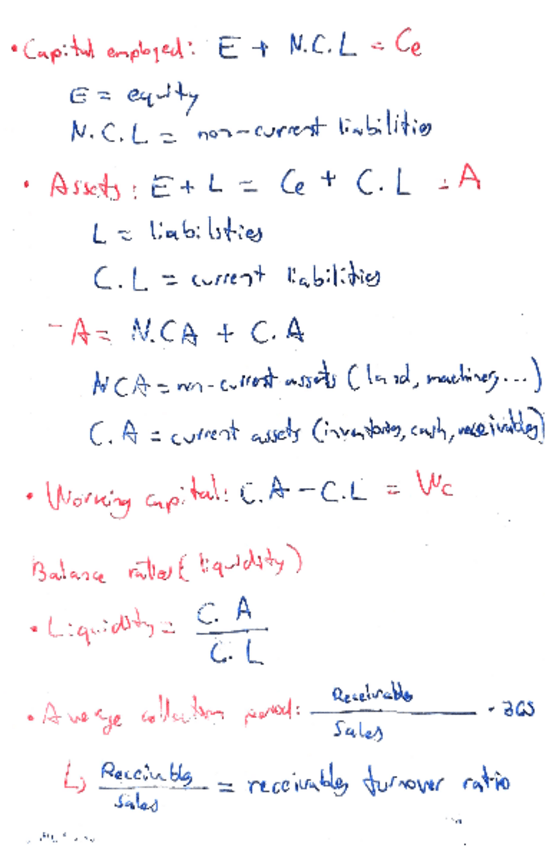 • Capital employed: E + N.C.L = Ce
E = equity
N.C.L = non-current liabilities
• Assets: E + L = Ce + C.L = A
L = liabilities
C.L = current liabilities
- A = N.CA + C.A
NCA = non-current assets (land, machines, ...)
C.A = current assets (inventories, cash, receivables)
• Working capital: C.A - C.L = Wc
Balance ratios (liquidity)
• Liquidity = C.A / C.L
• Average collection period: Receivables / Sales · 365
↳ Receivables / Sales = receivables turnover ratio